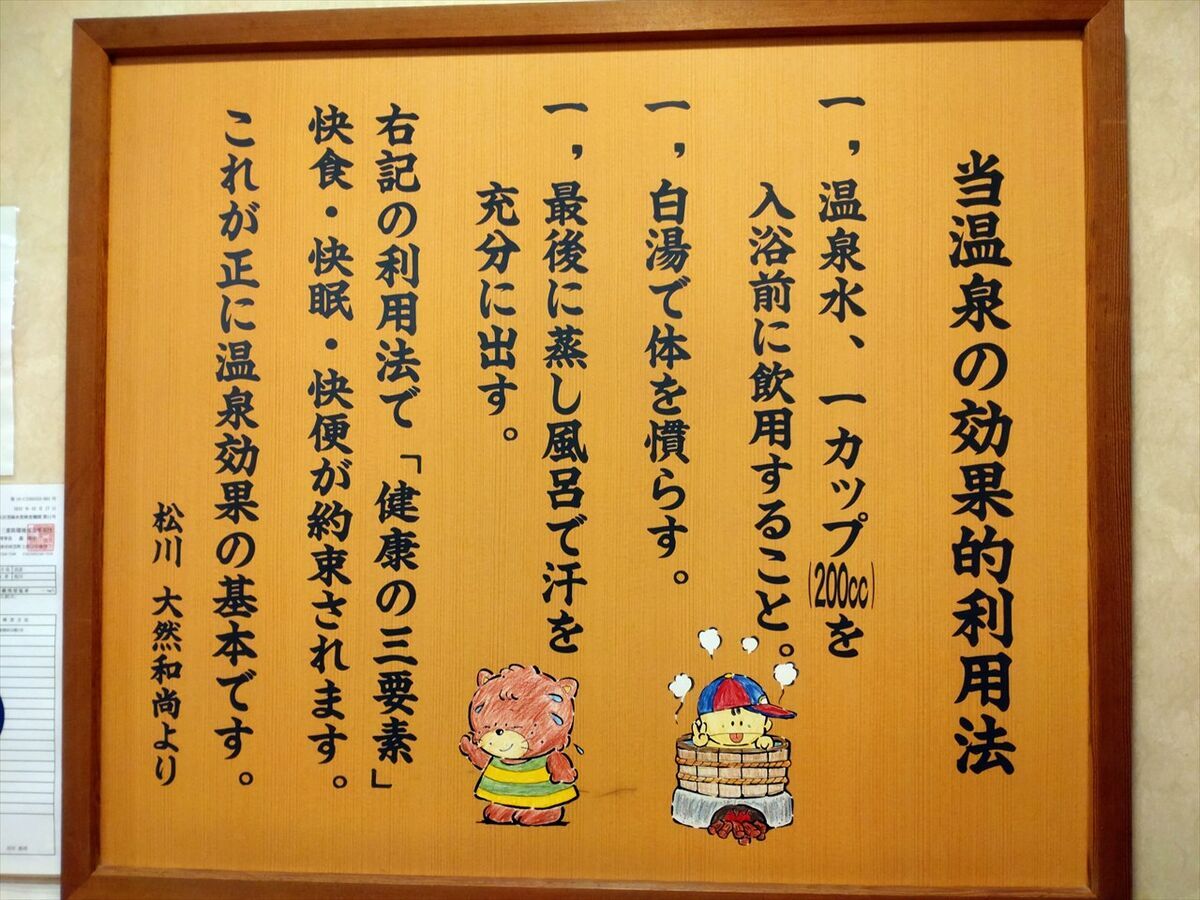 当温泉の効果的利用法
一，温泉水、一カップ(200cc)を
入浴前に飲用すること。
一，白湯で体を慣らす。
一，最後に蒸し風呂で汗を
充分に出す。
右記の利用法で「健康の三要素」
快食・快眠・快便が約束されます。
これが正に温泉効果の基本です。
松川 大然和尚より